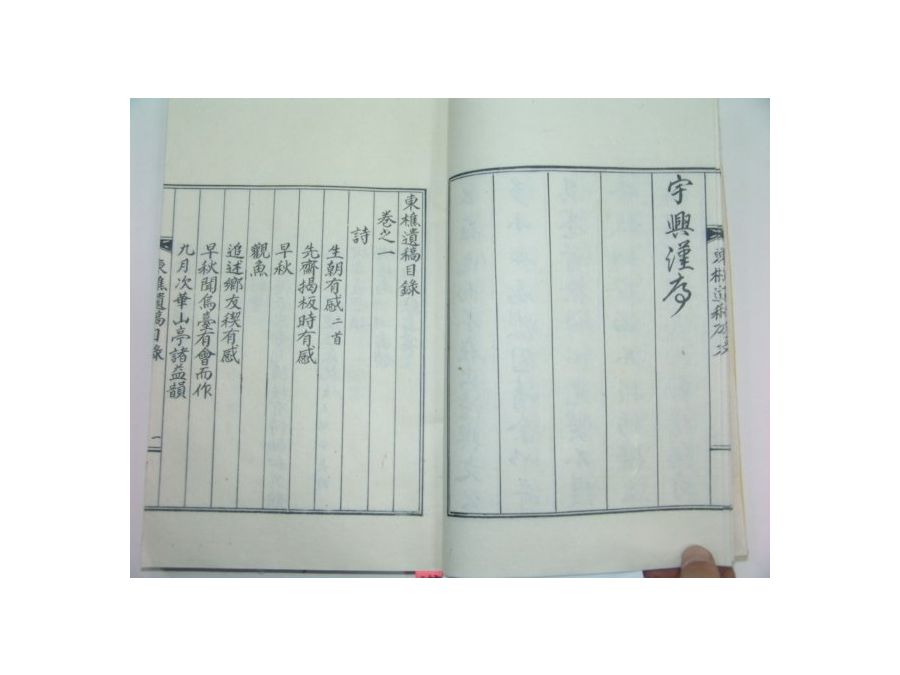 宇興漢序
東樵遺稿目錄
卷之一
詩
生朝有感二首
先齋揭板時有感
早秋
觀魚
追述鄉友稧有感
早秋聞烏臺有會而作
九月次華山亭諸益韻
東樵遺稿目錄
一